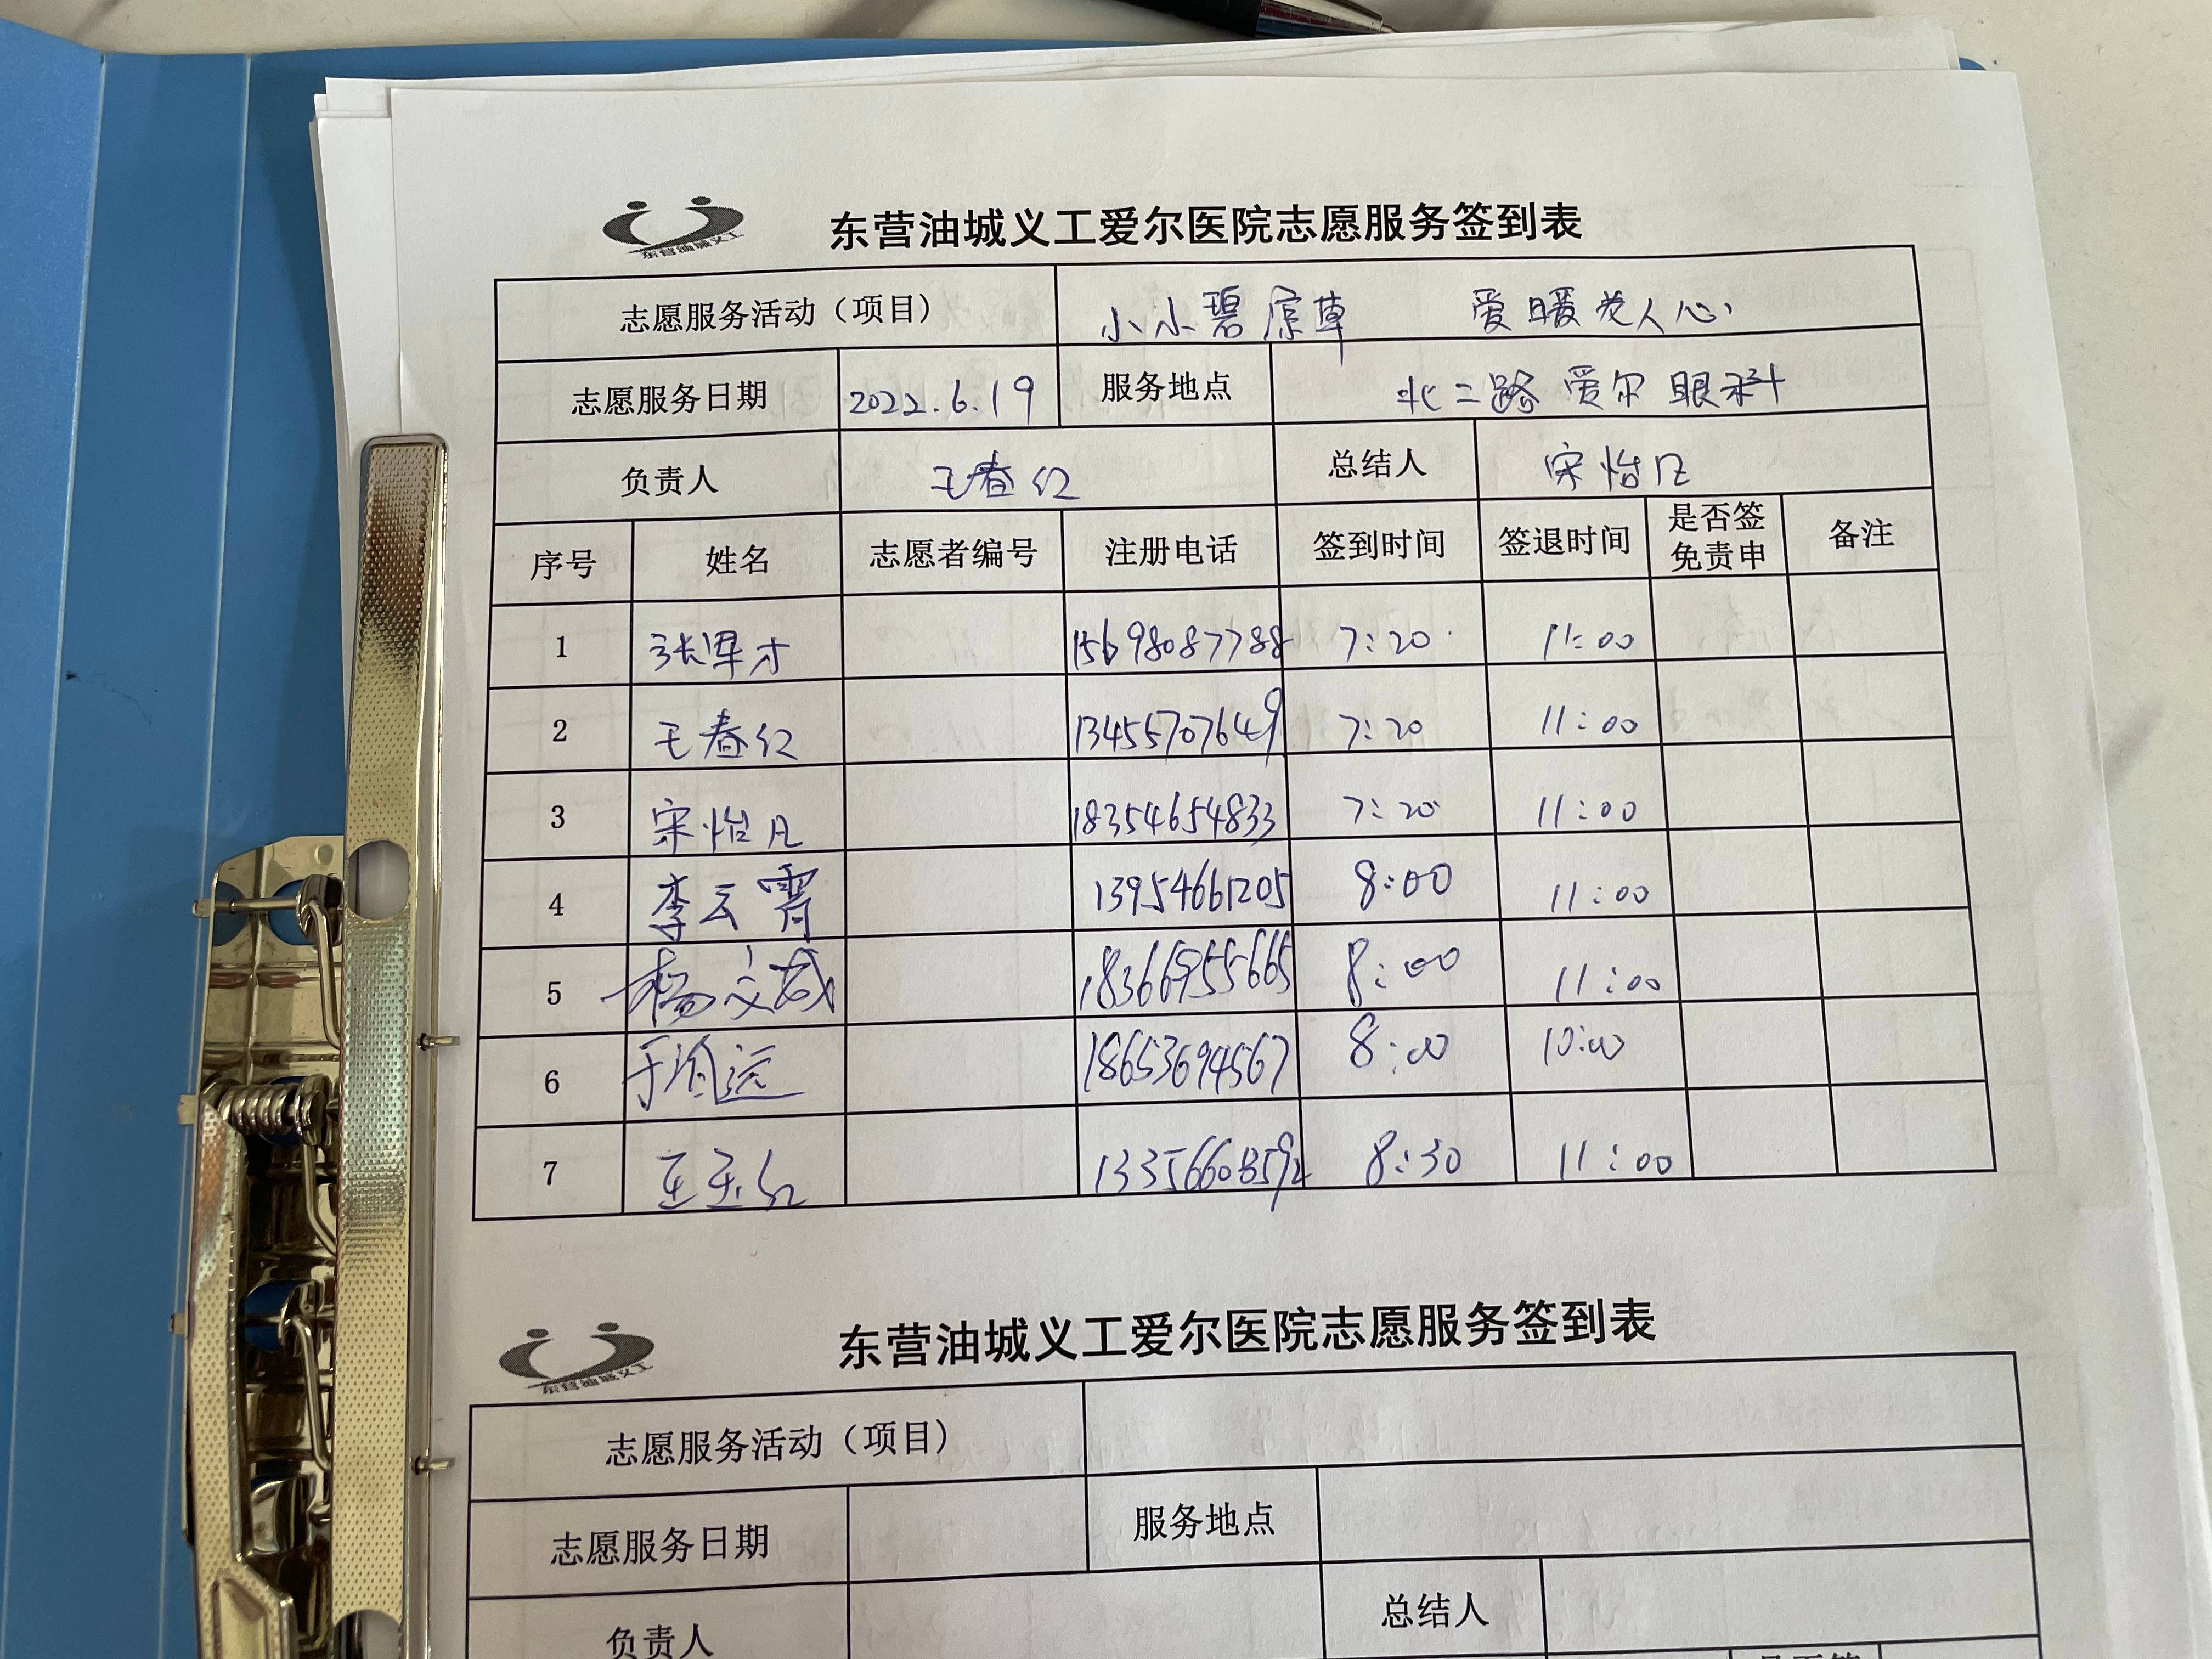 东营油城义工
东营油城义工爱尔医院志愿服务签到表
志愿服务活动（项目） 小小碧原草 爱暖老人心
志愿服务日期 2022.6.19 服务地点 北二路 爱尔 眼科
负责人 王春红 总结人 宋怡凡
序号 姓名 志愿者编号 注册电话 签到时间 签退时间 是否签免责申 备注
1 张军才 15698087788 7:20 11:00
2 王春红 13455707649 7:20 11:00
3 宋怡凡 18354654833 7:20 11:00
4 李云霄 13954661205 8:00 11:00
5 杨文 18366955665 8:00 11:00
6 于 远 18653694567 8:00 10:00
7 王玉红 8:30 11:00
东营油城义工
东营油城义工爱尔医院志愿服务签到表
志愿服务活动（项目）
志愿服务日期 服务地点
负责人 总结人